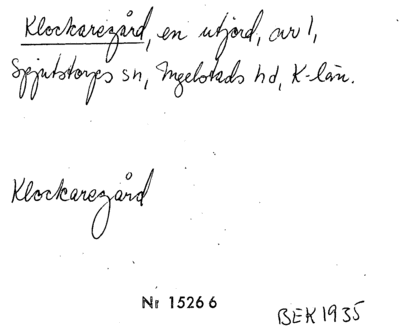 Klockaregård, en utjord, av 1,
Spjutstorps sn, Ingelstads hd, K-län.
Klockaregård
Nr 15266
BEK 1935